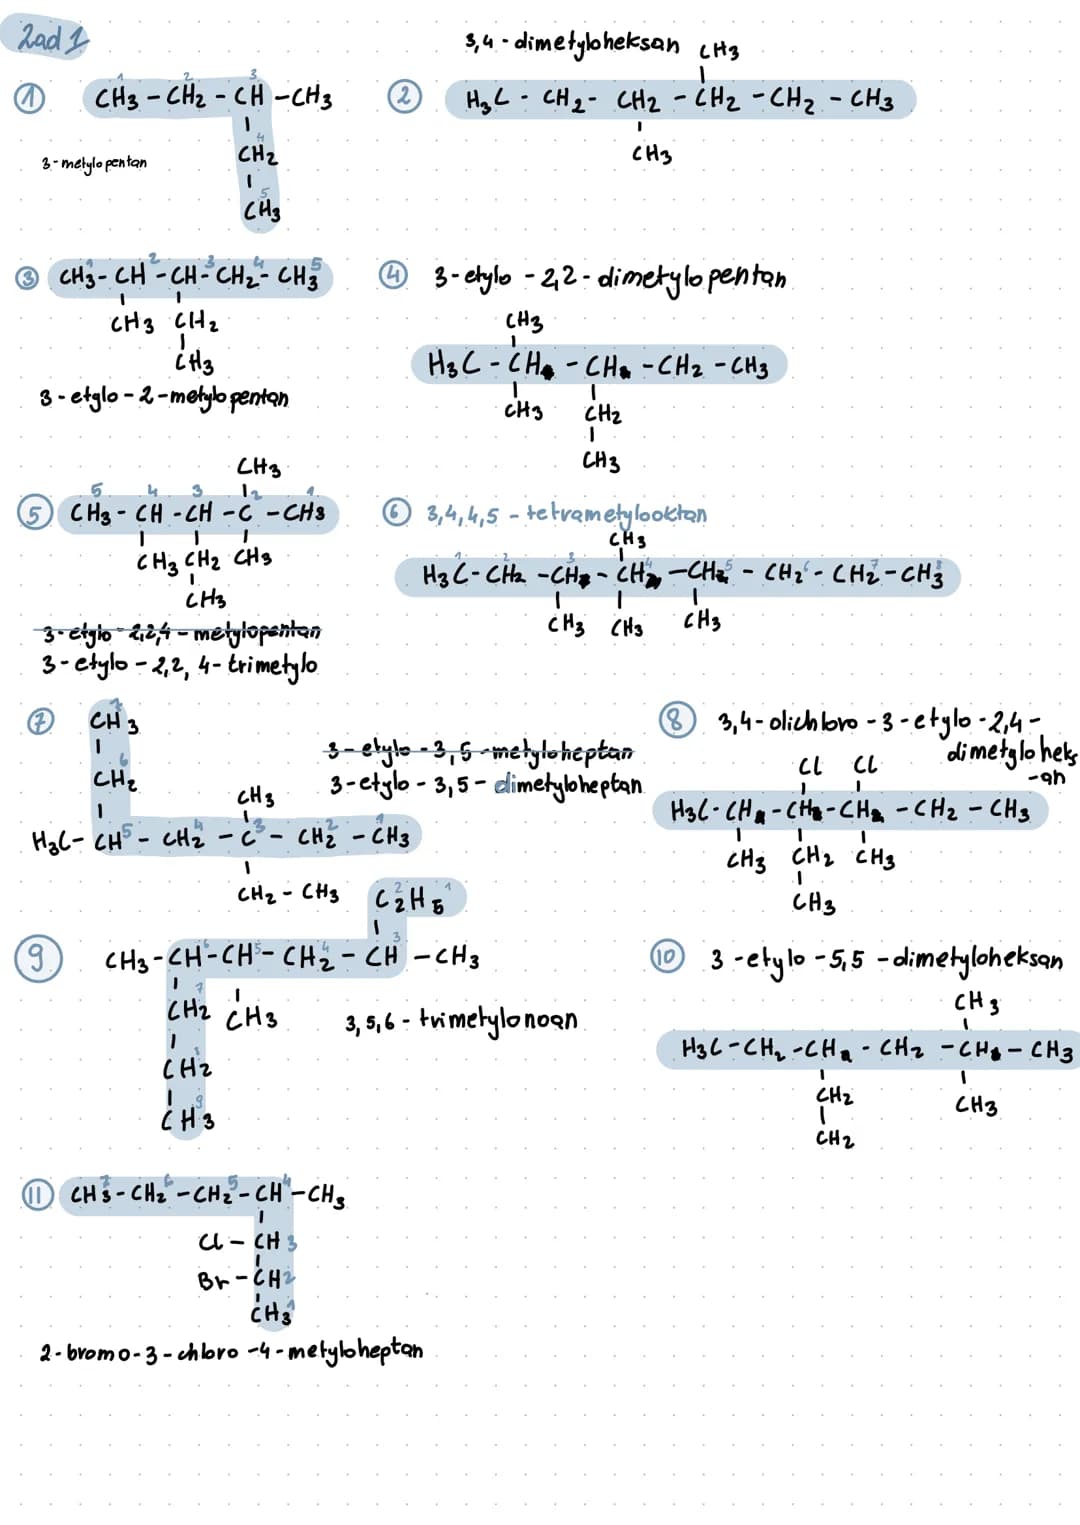 Zad 1
① CH3 - CH2 - CH - CH3
1 2 3
4
CH2
5
CH3
3-metylopentan
② 3,4 - dimetyloheksan
CH3
H3C - CH2 - CH2 - CH2 - CH2 - CH3
CH3
③ CH3 - CH - CH - CH2 - CH3
1 2 3 4 5
CH3 CH2
CH3
3-etylo-2-metylopentan
④ 3-etylo - 2,2 - dimetylopentan
CH3
H3C - CH - CH - CH2 - CH3
CH3 CH2
CH3
⑤ CH3
5 4 3 2 1
CH3 - CH - CH - C - CH3
CH3 CH2 CH3
CH3
3-etylo-2,2,4-metylopentan
3-etylo-2,2,4-trimetylo
⑥ 3,4,4,5 - tetrametylooktan
CH3
1 2 3 4 5 6 7 8
H3C - CH2 - CH - CH - CH - CH2 - CH2 - CH3
CH3 CH3 CH3
⑦ CH3 7
CH2 6
CH3
H3C - CH - CH2 - C - CH2 - CH3
5 4 3 2 1
CH2 - CH3
3-etylo-3,5-metyloheptan
3-etylo-3,5-dimetyloheptan
⑧ 3,4-dichloro-3-etylo-2,4-
dimetyloheks
-an
Cl Cl
H3C - CH - CH - CH - CH2 - CH3
CH3 CH2 CH3
CH3
⑨ C2H5
2 1
CH3 - CH - CH - CH2 - CH - CH3
6 5 4 3
7
CH2 CH3
8
CH2
9
CH3
3,5,6 - trimetylonoan
⑩ 3-etylo-5,5-dimetyloheksan
CH3
H3C - CH2 - CH - CH2 - CH - CH3
CH2 CH3
CH2
⑪ CH3 - CH2 - CH2 - CH - CH3
7 6 5 4
Cl - CH 3
Br - CH 2
CH3 1
2-bromo-3-chloro-4-metyloheptan